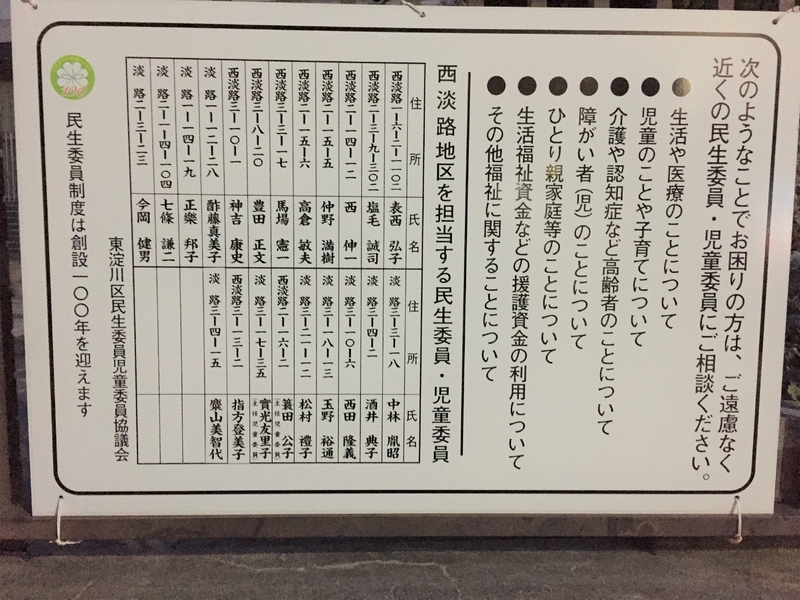 次のようなことでお困りの方は、ご遠慮なく
近くの民生委員・児童委員にご相談ください。
●生活や医療のことについて
●児童のことや子育てについて
●介護や認知症など高齢者のことについて
●障がい者(児)のことについて
●ひとり親家庭等のことについて
●生活福祉資金などの援護資金の利用について
●その他福祉に関することについて
西淡路地区を担当する民生委員・児童委員
住所 氏名 住所 氏名
西淡路一-六-二-一〇二 表西 弘子 淡路三-三-一八 中林 胤昭
西淡路二-三-九-三〇二 塩毛 誠司 淡路三-四-二 酒井 典子
西淡路二-一四-一二 西 伸一 淡路三-一〇-六 西田 隆義
西淡路二-一五-五 仲野 満樹 淡路三-一八-一三 玉野 裕通
西淡路二-一五-六 高倉 敏夫 淡路三-二一-一二 松村 禮子
西淡路三-三-一七 馬場 憲一 西淡路二-一六-二 簑田 公子 (主任児童委員)
西淡路三-八-二〇 豊田 正文 淡路三-一七-三五 實光友里子 (主任児童委員)
西淡路三-一〇-一 神吉 康史 西淡路三-一三-二 指方登美子
淡路一-一二-二八 酢藤真美子 淡路三-四-一五 糜山美智代
淡路一-一四-一九 正樂 邦子
淡路二-一-四-一〇四 七條 謙二
淡路二-三-二三 今岡 健男
東淀川区民生委員児童委員協議会
民生委員制度は創設一〇〇年を迎えます